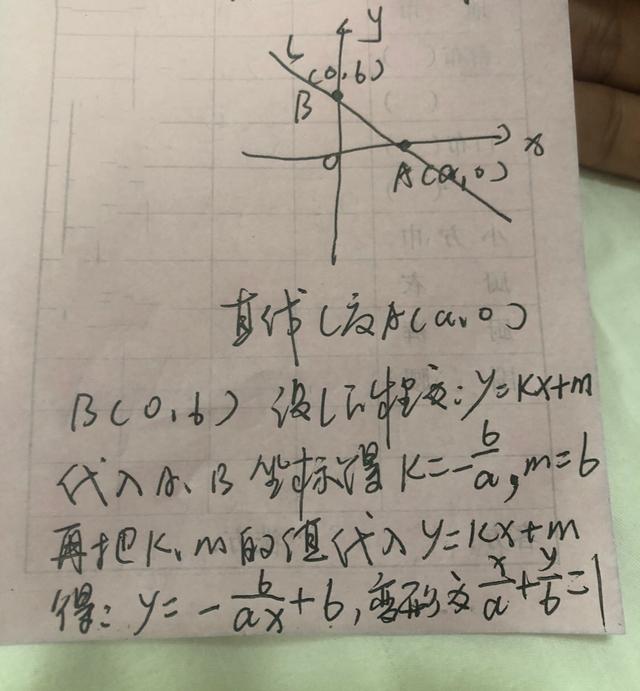 y
L
(0,b)
B
x
O
A(a,0)
直线L交A(a,0)
B(0,b) 设L的方程为:y=Kx+m
代入A、B坐标得K=-b/a,m=b
再把K、m的值代入y=Kx+m
得:y=-b/ax+b,变形为x/a+y/b=1